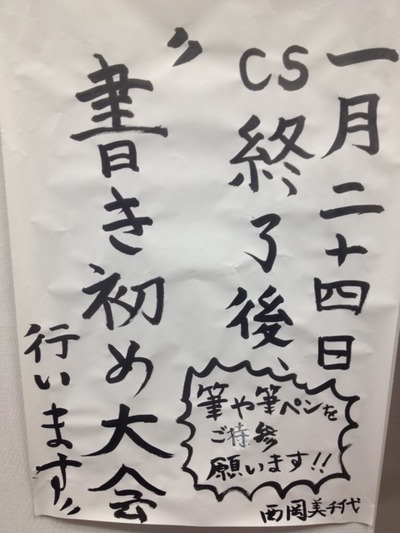 一月二十四日
CS終了後、
〃書き初め大会
行います〃
筆や筆ペンを
ご持参
願います!!
西岡美千代